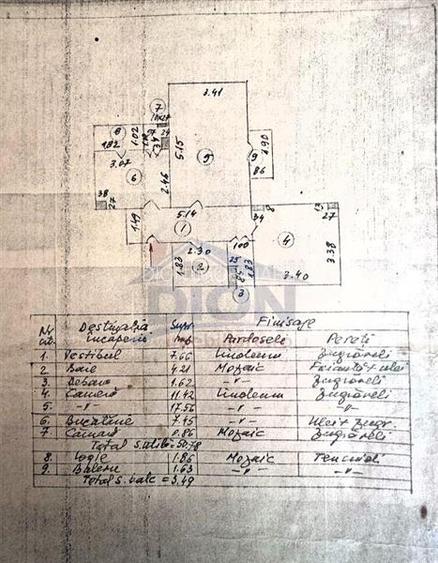 3.41
7
8
1.02
24
1.92
3.07
5.15
9
9
.90
86
6
2.46
38
27
1.49
5.14
34
8
13
27
1
2.30
100
4
1.83
2
25
1.83
3.38
3.40
3
DION
Nr. Destinația Supr. Finisaje
crt. încăperii Pardoseli Pereți
1. Vestibul 7.66 Linoleum Zugrăveli
2 Baie 4.21 Mozaic Faianță + ulei
3 Debara 1.62 -"- Zugrăveli
4. Cameră 11.42 Linoleum Zugrăveli
5. -"- 17.56 -"-
6. Bucătărie 7.45 Ulei + zugr.
7 Cămară 0.86 Mozaic Zugrăveli
Total s. utilă 50.78
8. Logie 1.86 Mozaic Tencuieli
9. Balcon 1.63 -"- -"-
Total s. balc = 3.49